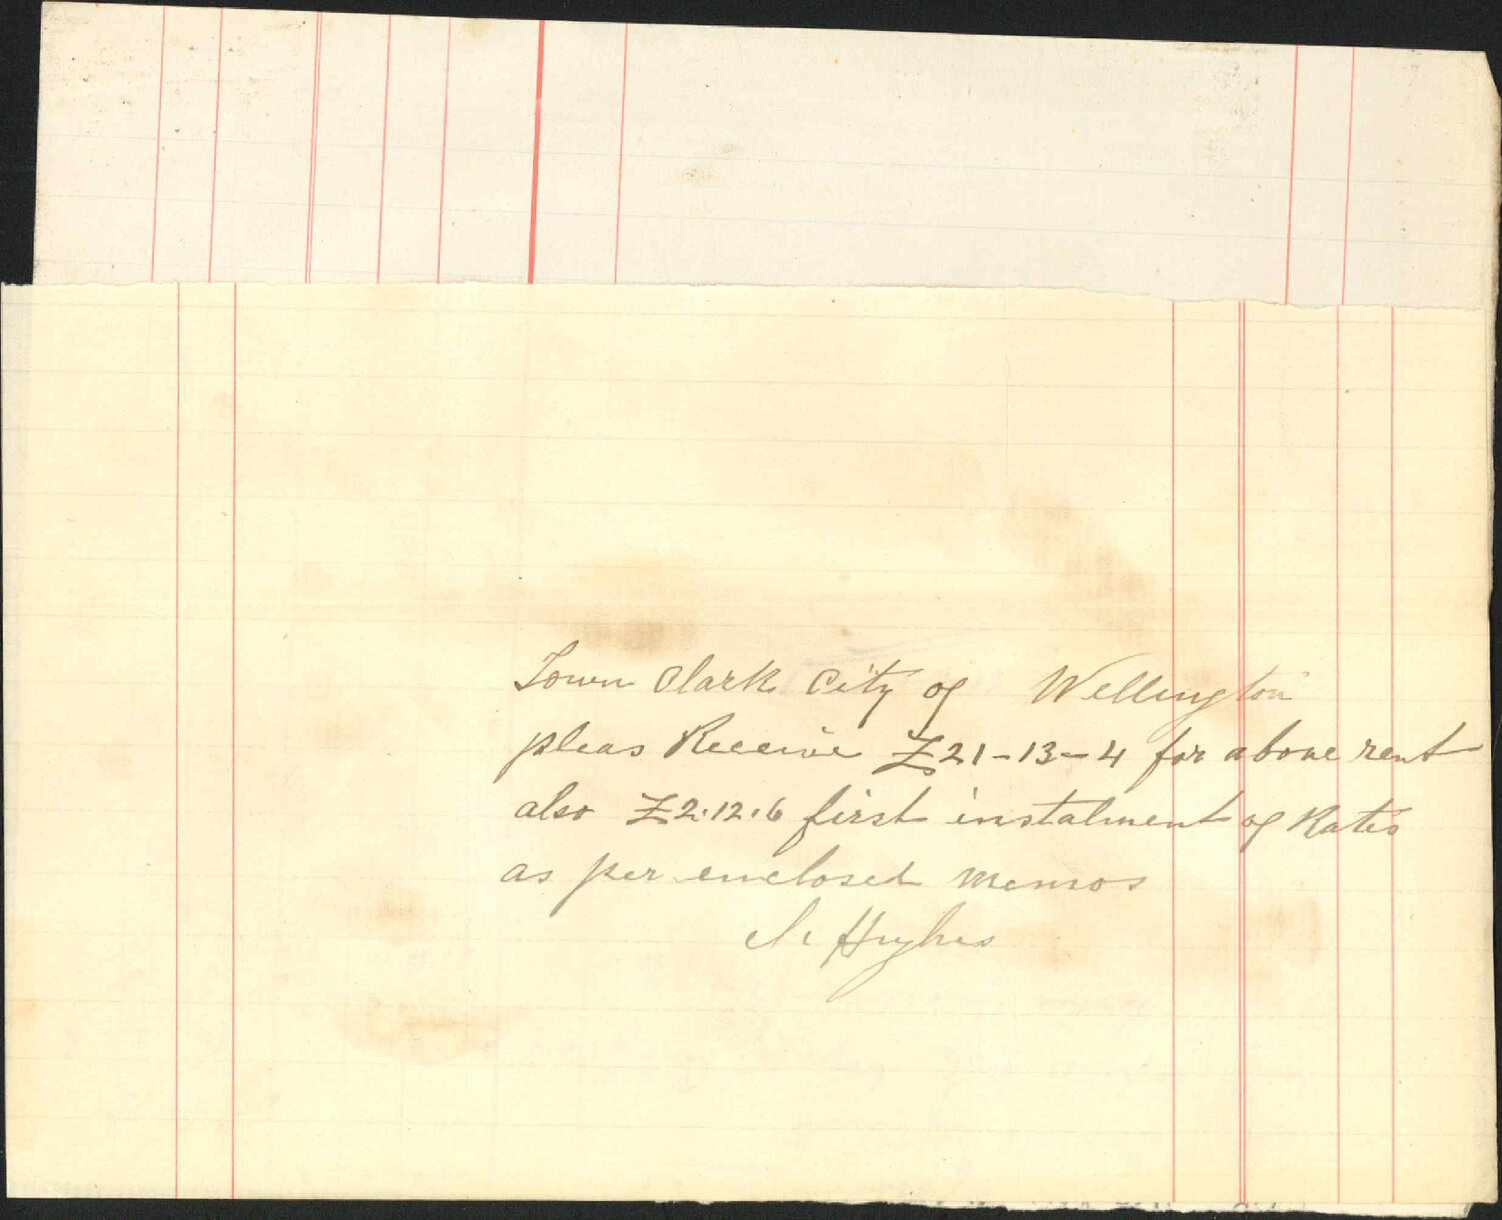 Town Clark City of Wellington
pleas Receive £21-13-4 for above rent
also £2.12.6 first instalment of Rates
as per enclosed memos
Hughes